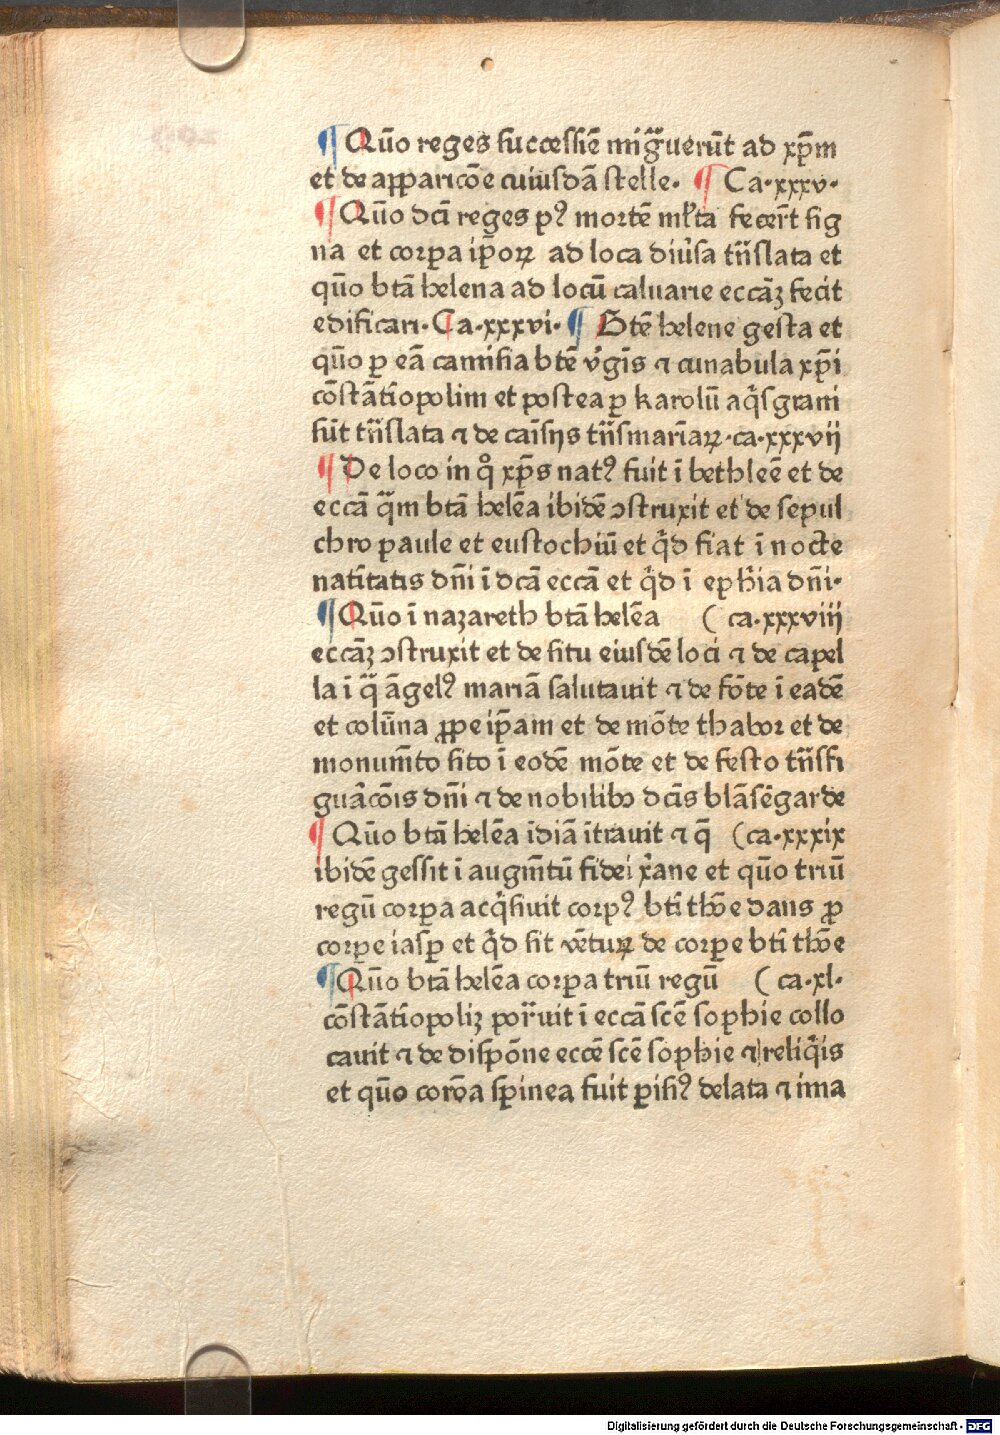 ¶ Quo̅ reges successiue̅ mig̃ueru̅t ad xp̅m
et de apparico̅e cuiusda̅ stelle. ¶ Ca.xxxv.
¶ Quo̅ dci̅ reges pꝰ morte̅ ml̅ta fecer̅t sig
na et corꝑa ip̅oꝝ ad loca diu̅sa tñslata et
quo̅ bta̅ helena ad locu̅ caluarie ecca̅ꝫ fecit
edificari. Ca.xxxvi. ¶ Bte̅ helene gesta et
quo̅ ꝑ ea̅ camisia bte̅ v̅gis̅ ⁊ cunabula xp̅i
co̅sta̅ti̅opolim et postea ꝑ karolu̅ aq̅sgrani
su̅t tñslata ⁊ de cai̅sijs tñsmari̅aꝝ.ca.xxxvij
¶ De loco in q̊ xp̅s natꝰ fuit i̅ bethlee̅ et de
ecca̅ q̃m bta̅ hele̅a ibide̅ ↄstruxit et de sepul
chro paule et eustochiu̅ et q̅d fiat i̅ nocte
nati̅tatis dn̅i i̅ dca̅ ecca̅ et q̅d i̅ epħia dn̅i.
¶ Quo̅ i̅ nazareth bta̅ hele̅a ( ca.xxxviij
ecca̅ꝫ ↄstruxit et de situ eiusde̅ loci ⁊ de capel
la i̅ q̃ a̅gelꝰ maria̅ salutauit ⁊ de fo̅te i̅ eade̅
et colu̅na ꝓpe ip̅am et de mo̅te thabor et de
monum̅to sito i̅ eode̅ mo̅te et de festo tñsfi
gua̅co̅is dn̅i ⁊ de nobilibꝫ dci̅s bla̅se̅garde
¶ Quo̅ bta̅ hele̅a i̅dia̅ i̅trauit ⁊ q̅ (ca.xxxix
ibide̅ gessit i̅ augm̅tu̅ fidei x̅ane et quo̅ triu̅
regu̅ corꝑa acq̅siuit corpꝰ bti̅ tho̅e dans ꝓ
corꝑe iasꝑ et q̅d sit ve̅tuꝝ de corꝑe bti̅ tho̅e
¶ Quo̅ bta̅ hele̅a corꝑa triu̅ regu̅ ( ca.xl.
co̅sta̅ti̅opoliꝫ por̃uit i̅ ecca̅ sce̅ sophie collo
cauit ⁊ de dispo̅ne ecce̅ sce̅ sophie ⁊ reliq̅is
et quo̅ coro̅a spinea fuit ꝑisiꝰ delata ⁊ ima
Digitalisierung gefördert durch die Deutsche Forschungsgemeinschaft - DFG